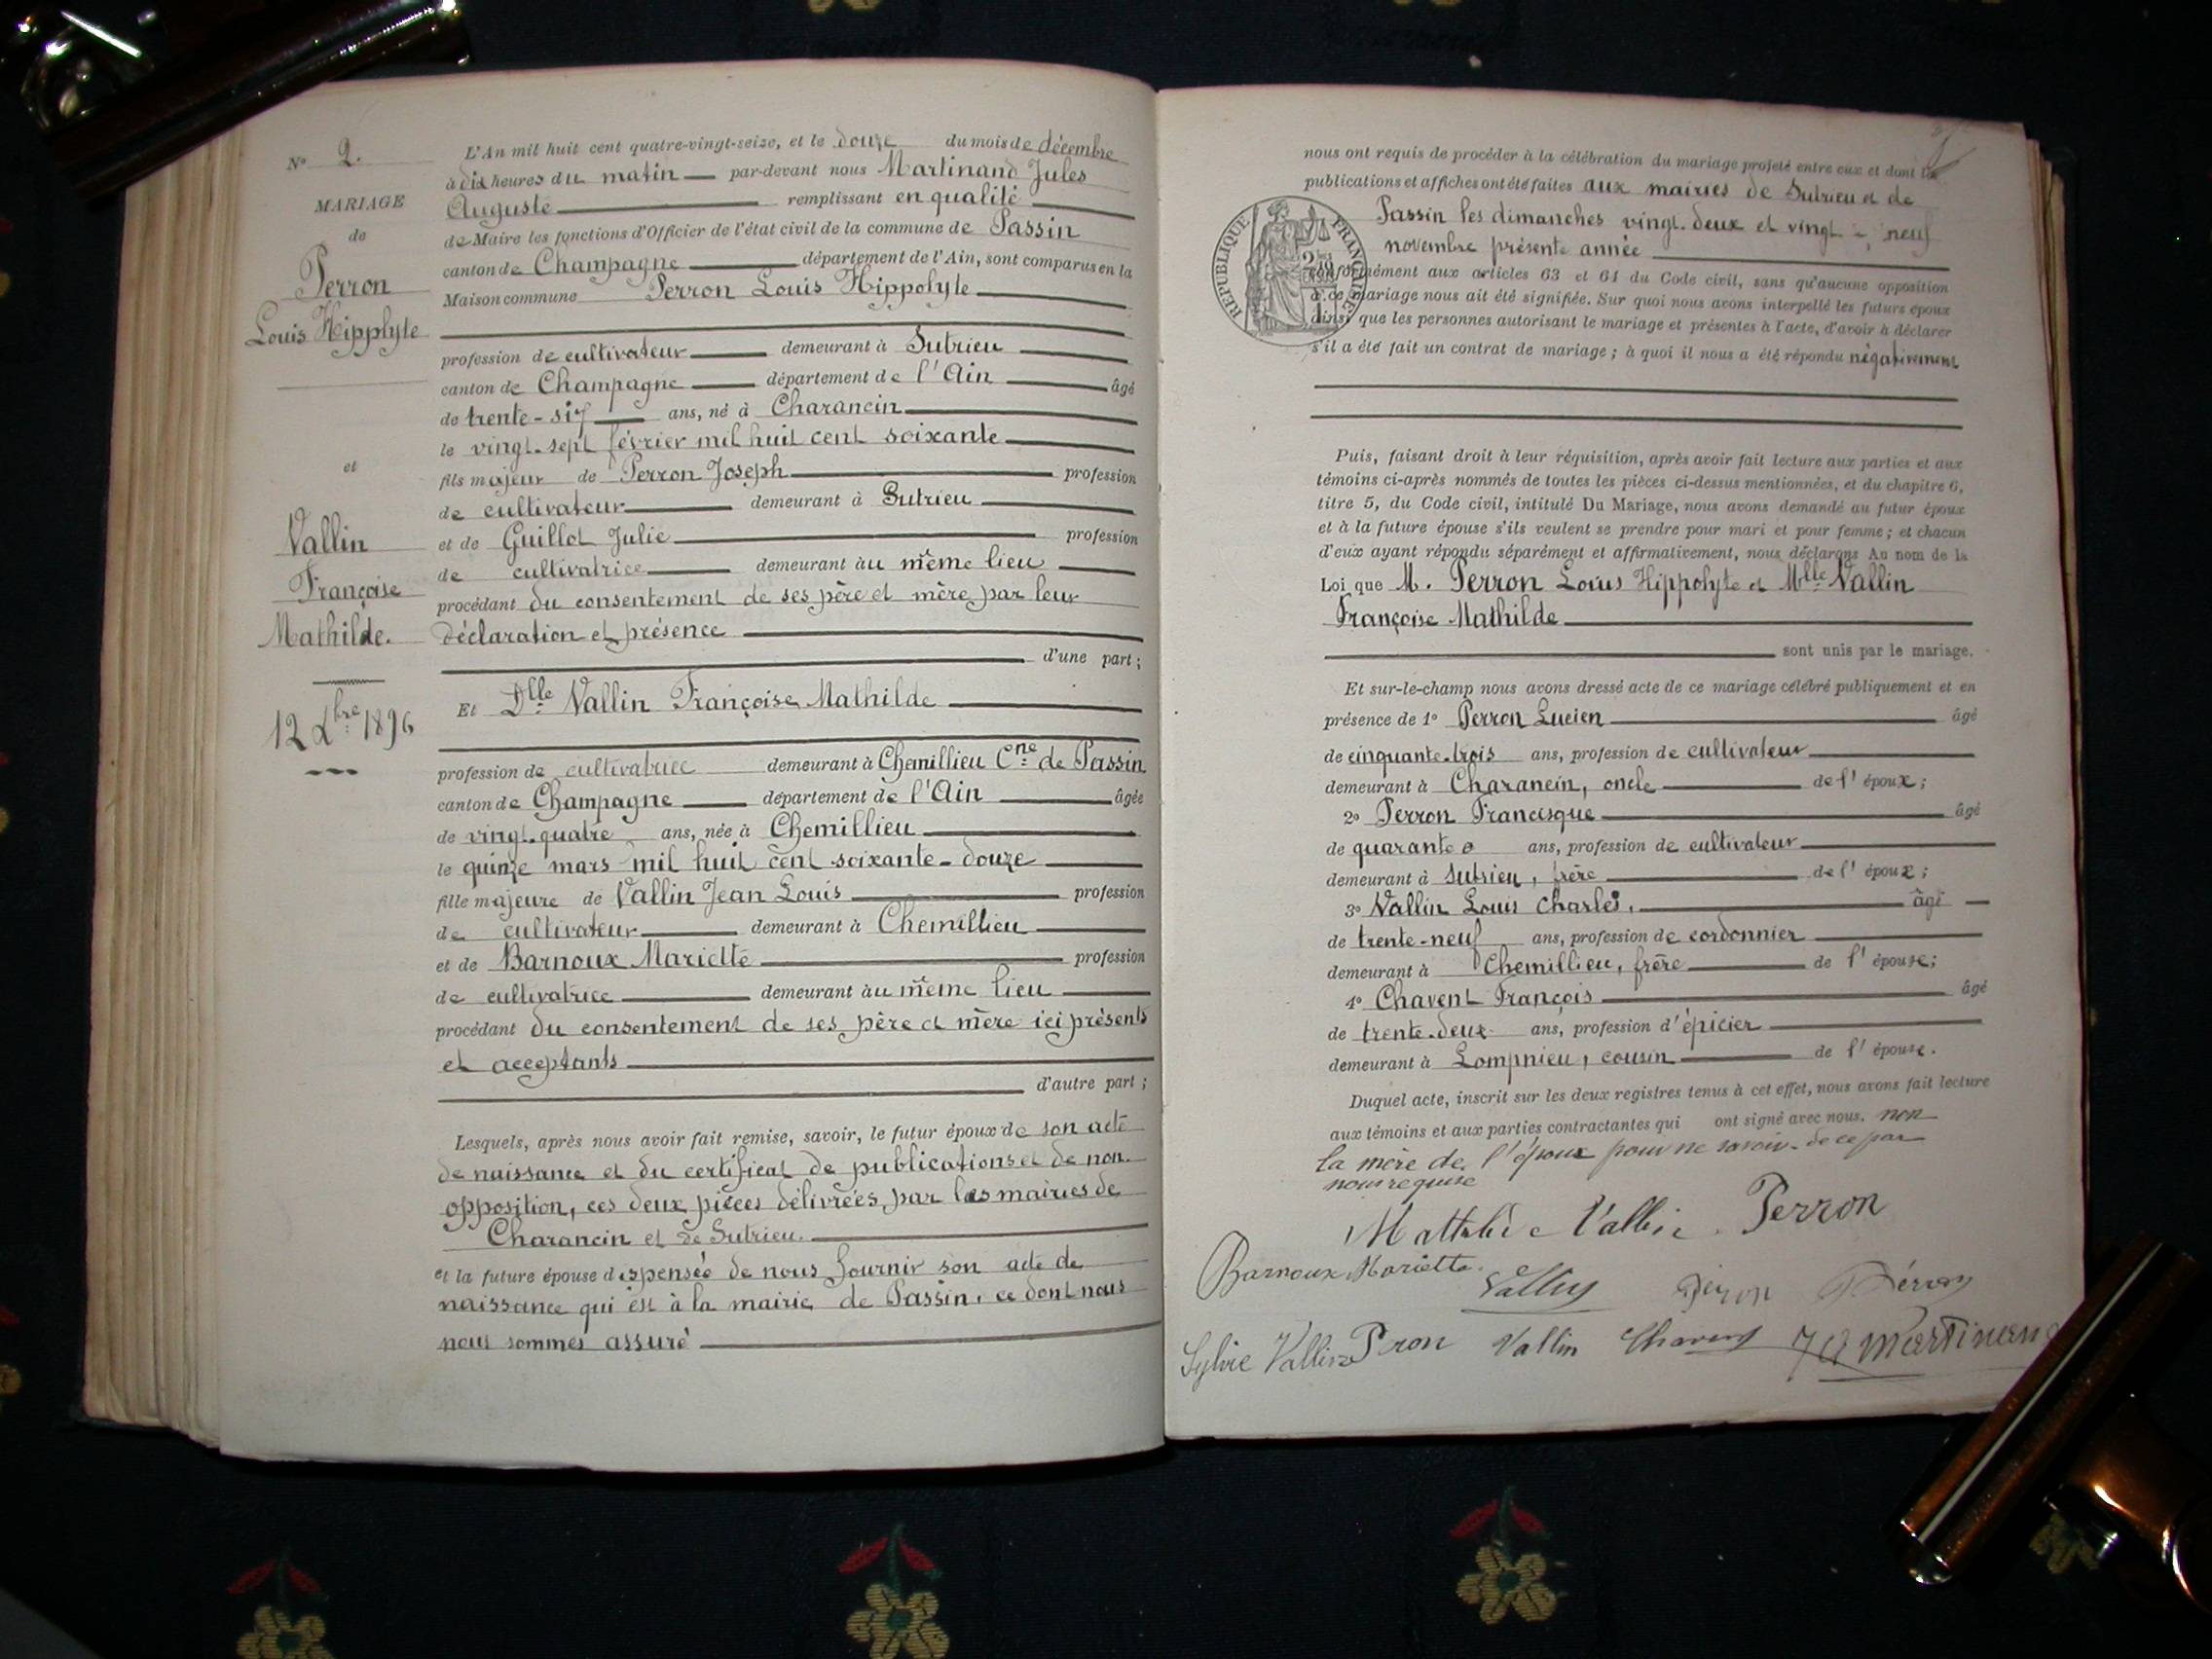 N° 2.
MARIAGE
de
Perron
Louis Hipplyte
et
Vallin
Françoise
Mathilde.
12 Xbre 1896
L'An mil huit cent quatre-vingt-seize, et le douze du mois de décembre
à dix heures du matin par-devant nous Martinand Jules
Auguste remplissant en qualité
de Maire les fonctions d'Officier de l'état civil de la commune de Passin
canton de Champagne département de l'Ain, sont comparus en la
Maison commune Perron Louis Hippolyte
profession de cultivateur demeurant à Sutrieu
canton de Champagne département de l'Ain âgé
de trente-six ans, né à Charancin
le vingt-sept février mil huit cent soixante
fils majeur de Perron Joseph profession
de cultivateur demeurant à Sutrieu
et de Guillot Julie profession
de cultivatrice demeurant au même lieu
procédant du consentement de ses père et mère par leur
déclaration et présence
d'une part ;
Et Dlle Vallin Françoise Mathilde
profession de cultivatrice demeurant à Chemillieu Cne de Passin
canton de Champagne département de l'Ain âgée
de vingt-quatre ans, née à Chemillieu
le quinze mars mil huit cent soixante-douze
fille majeure de Vallin Jean Louis profession
de cultivateur demeurant à Chemillieu
et de Barnoux Mariette profession
de cultivatrice demeurant au même lieu
procédant du consentement de ses père et mère ici présents
et acceptants
d'autre part ;
Lesquels, après nous avoir fait remise, savoir, le futur époux de son acte
de naissance et du certificat de publications et de non-
opposition, ces deux pièces délivrées par les mairies de
Charancin et de Sutrieu.
et la future épouse dispensée de nous fournir son acte de
naissance qui est à la mairie de Passin, ce dont nous
nous sommes assuré
nous ont requis de procéder à la célébration du mariage projeté entre eux et dont les
publications et affiches ont été faites aux mairies de Sutrieu et de
Passin les dimanches vingt-deux et vingt-neuf
novembre présente année
RÉPUBLIQUE FRANÇAISE
conformément aux articles 63 et 64 du Code civil, sans qu'aucune opposition
à ce mariage nous ait été signifiée. Sur quoi nous avons interpellé les futurs époux
ainsi que les personnes autorisant le mariage et présentes à l'acte, d'avoir à déclarer
s'il a été fait un contrat de mariage ; à quoi il nous a été répondu négativement
Puis, faisant droit à leur réquisition, après avoir fait lecture aux parties et aux
témoins ci-après nommés de toutes les pièces ci-dessus mentionnées, et du chapitre 6,
titre 5, du Code civil, intitulé Du Mariage, nous avons demandé au futur époux
et à la future épouse s'ils veulent se prendre pour mari et pour femme ; et chacun
d'eux ayant répondu séparément et affirmativement, nous déclarons Au nom de la
Loi que M. Perron Louis Hippolyte et Mlle Vallin
Françoise Mathilde
sont unis par le mariage.
Et sur-le-champ nous avons dressé acte de ce mariage célébré publiquement et en
présence de 1° Perron Lucien âgé
de cinquante-trois ans, profession de cultivateur
demeurant à Charancin, oncle de l'époux ;
2° Perron Francisque âgé
de quarante ans, profession de cultivateur
demeurant à Sutrieu, frère de l'époux ;
3° Vallin Louis Charles, âgé
de trente-neuf ans, profession de cordonnier
demeurant à Chemillieu, frère de l'épouse ;
4° Chavent François âgé
de trente-deux ans, profession d'épicier
demeurant à Lompnieu, cousin de l'épouse.
Duquel acte, inscrit sur les deux registres tenus à cet effet, nous avons fait lecture
aux témoins et aux parties contractantes qui ont signé avec nous. non
la mère de l'époux pour ne savoir de ce par
nous requise
Mathilde Vallin Perron
Barnoux Mariette Perron
Sylvie Vallin Vallin Chavent JA Martinand